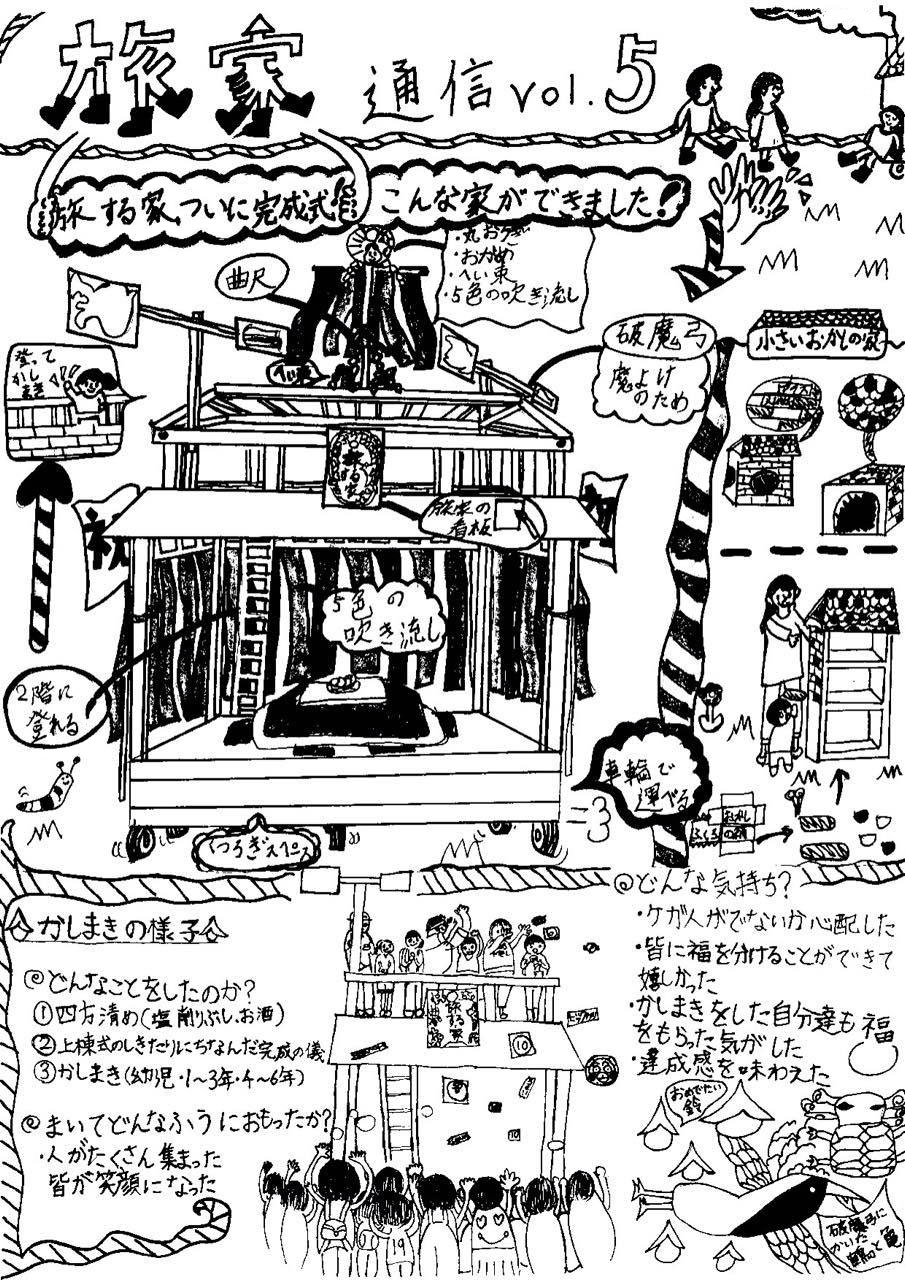 旅家 通信 vol.5
旅する家、ついに完成式
こんな家ができました!
・丸おうぎ
・おかめ
・へい束
・5色の吹き流し
曲尺
破魔弓
魔よけ
のため
小さいおかしの家
登って
かし
まき
旅する家
旅家の
看板
祝
5色の
吹き流し
2階に
登れる
車輪で
運べる
くつろぎスペース
⌂かしまきの様子⌂
◎どんなことをしたのか?
①四方清め(塩、削りぶし、お酒)
②上棟式のしきたりにちなんだ完成の儀
③かしまき(幼児・1〜3年・4〜6年)
◎まいてどんなふうにおもったか?
・人がたくさん集まった
皆が笑顔になった
旅する家
10
10
19
◎どんな気持ち?
・ケガ人がでないか心配した
・皆に福を分けることができて
嬉しかった
・かしまきをした自分達も福
をもらった気がした
・達成感を味わえた
おめでたい
鈴
破魔弓に
かいた
鶴と亀